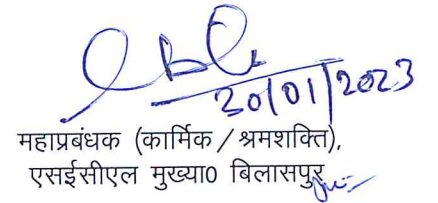 20/01/2023
महाप्रबंधक (कार्मिक / श्रमशक्ति),
एसईसीएल मुख्या0 बिलासपुर